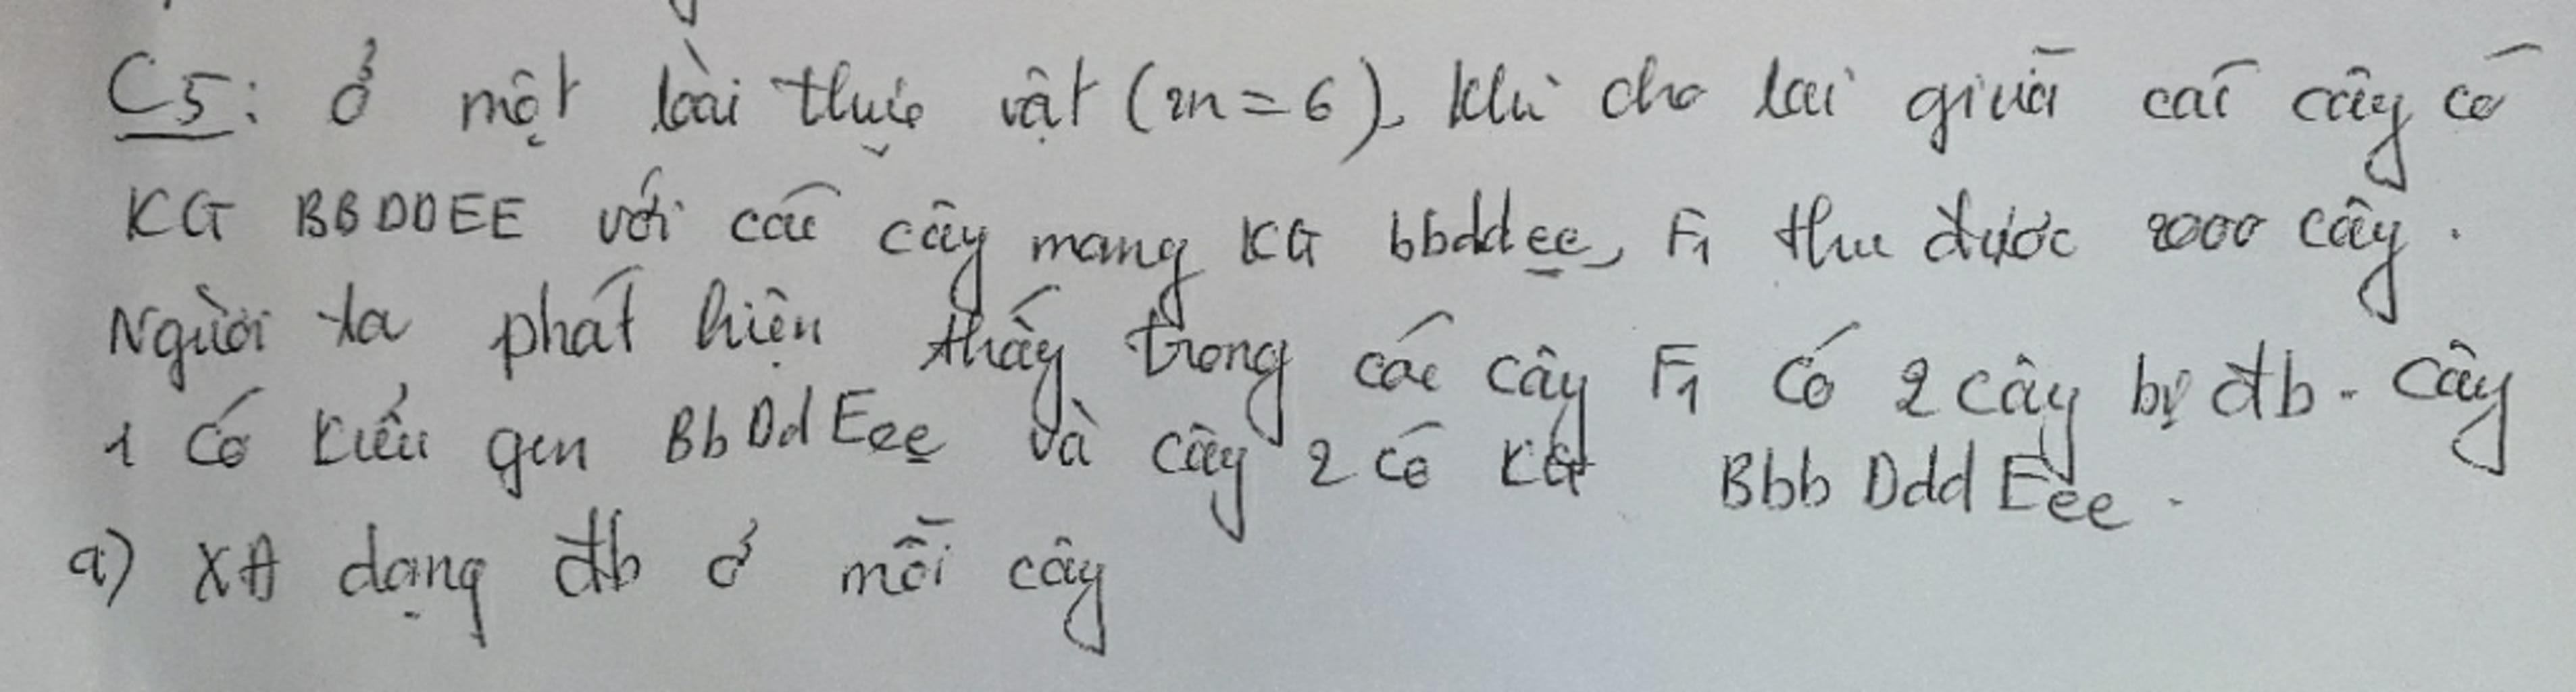 C5: ở một loài thực vật (2n = 6). Khi cho lai giữa các cây có
KG BBDDEE với các cây mang KG bbddee, F1 thu được 2000 cây.
Người ta phát hiện thấy trong các cây F1 có 2 cây bị đb. Cây
1 có kiểu gen BbDdEee và cây 2 có KG BbbDddEee.
a) XĐ dạng đb ở mỗi cây